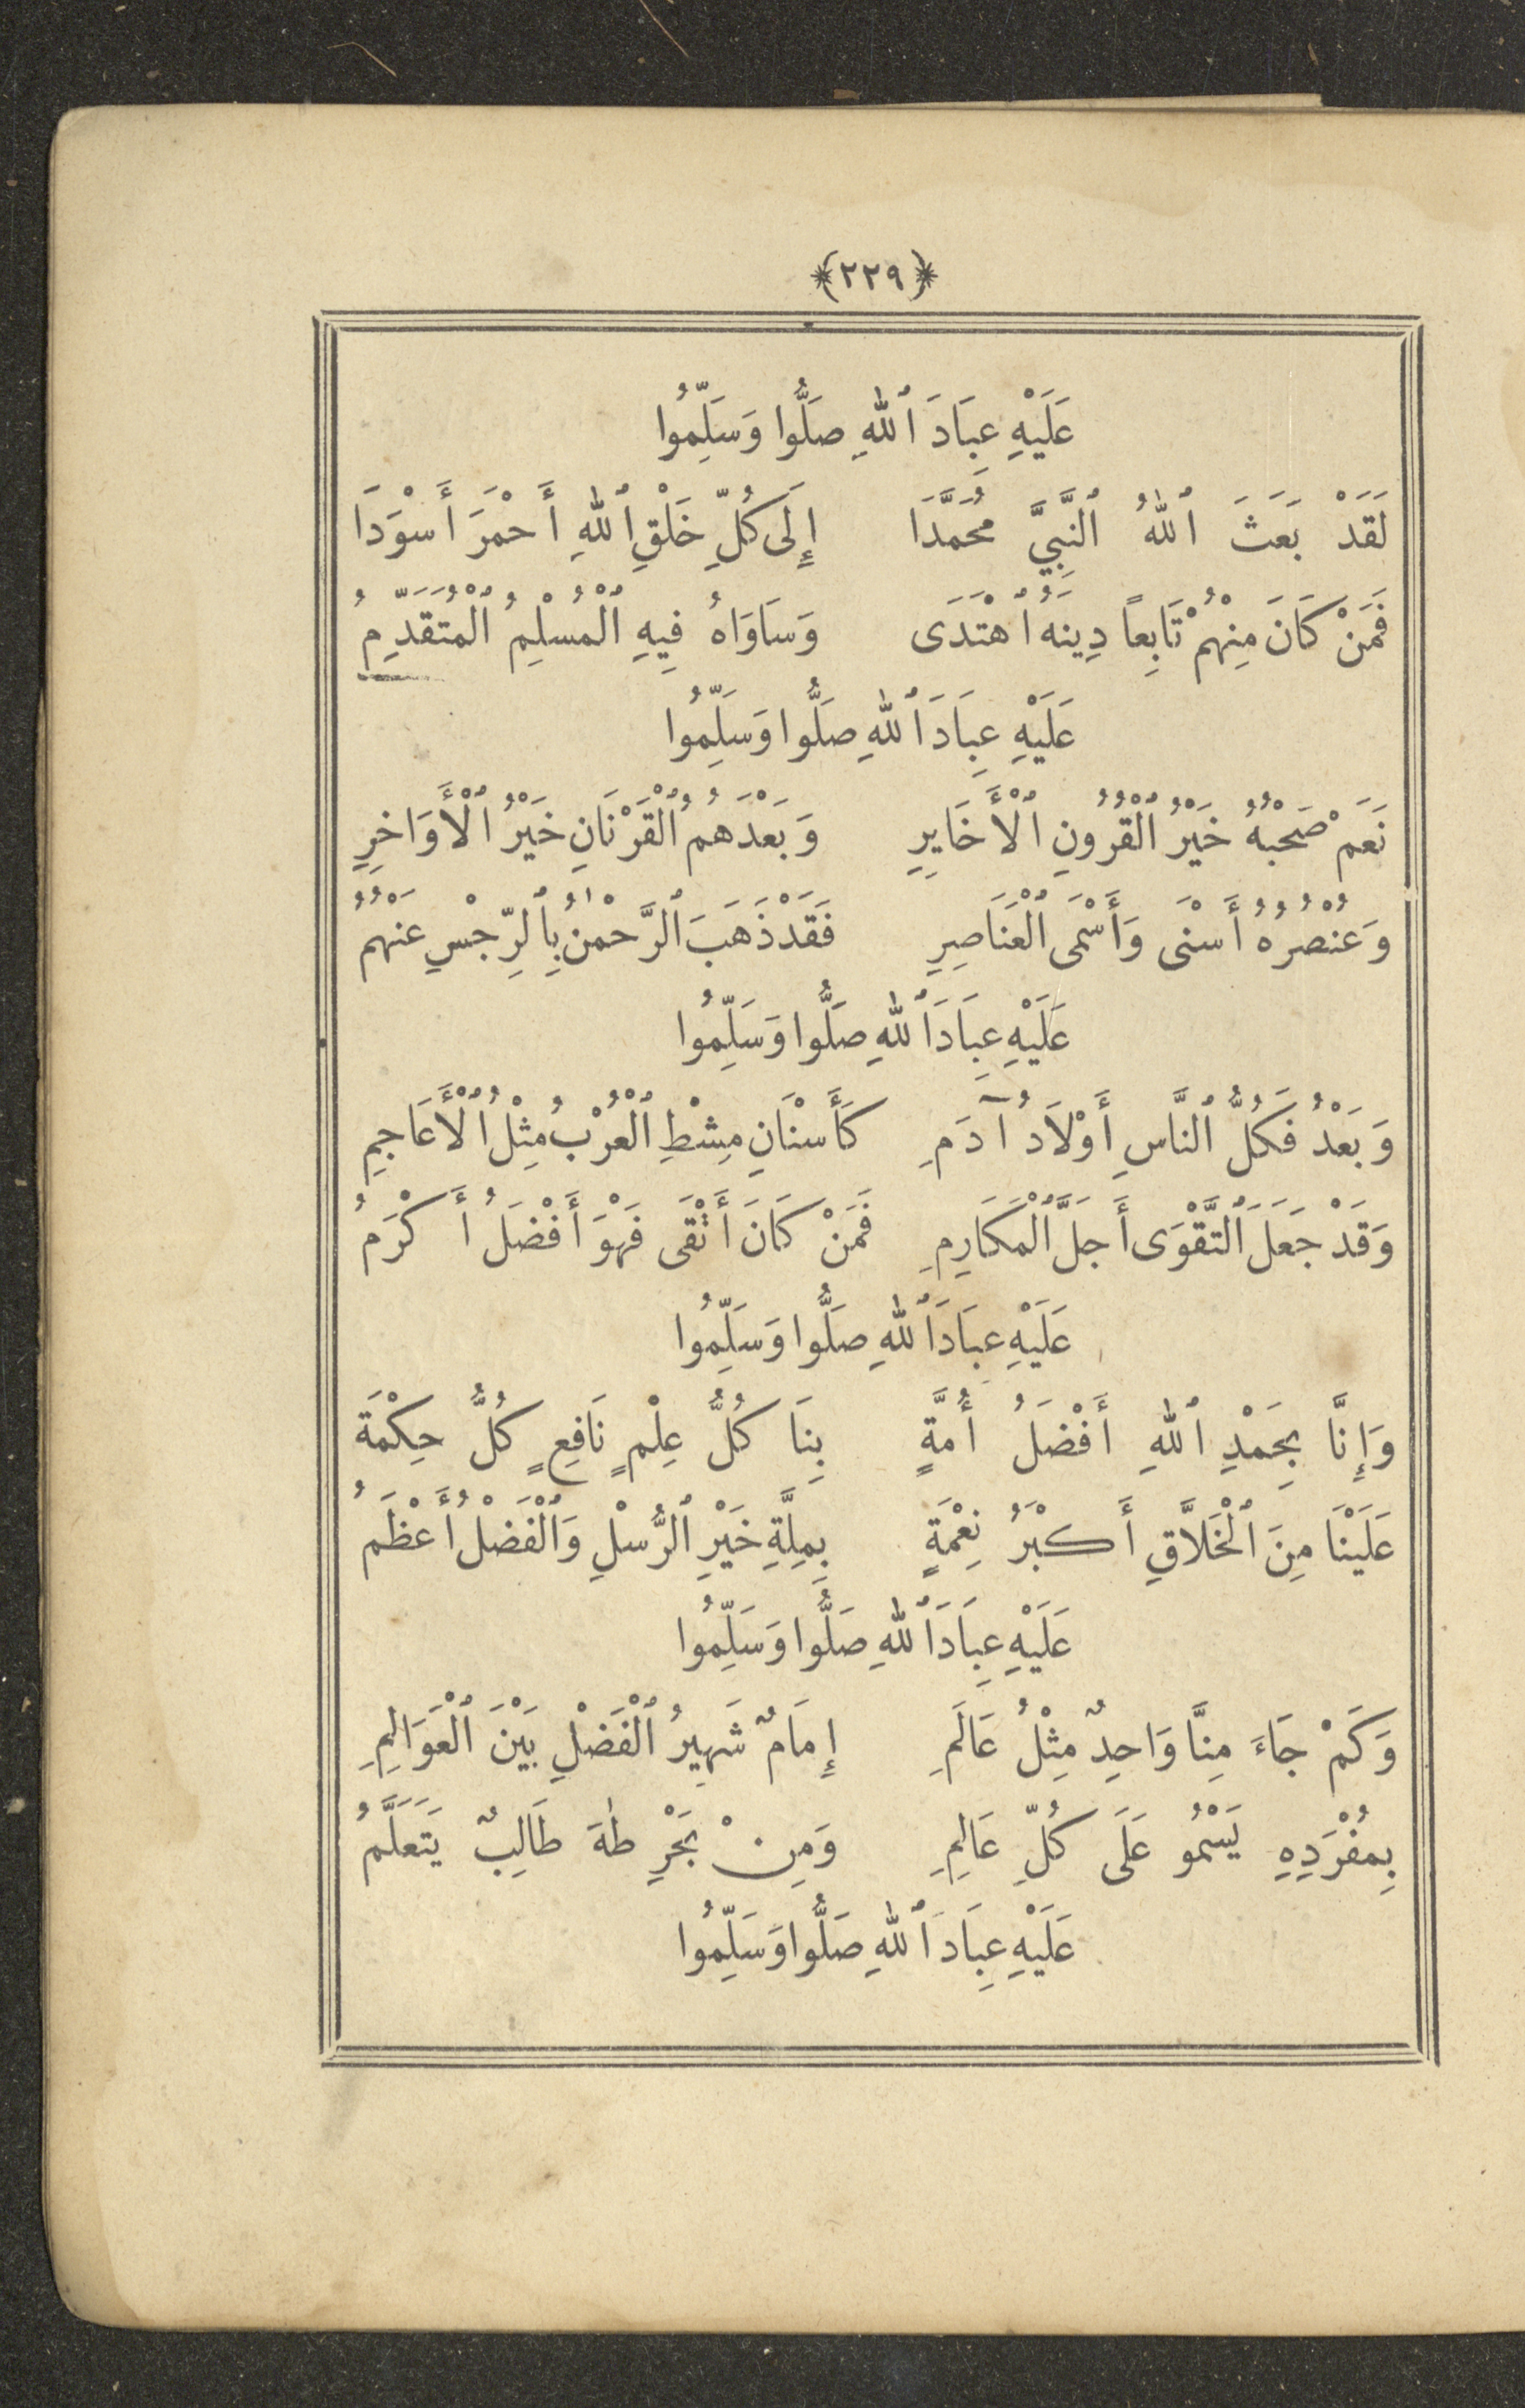 ﴿٢٢٩﴾
عَلَيْهِ عِبَادَ ٱللهِ صَلُّوا وَسَلِّمُوا
لَقَدْ بَعَثَ ٱللهُ ٱلنَّبِيَّ مُحَمَّدَا إِلَى كُلِّ خَلْقِ ٱللهِ أَحْمَرَ أَسْوَدَا
فَمَنْ كَانَ مِنْهُمْ تَابِعاً دِينَهُ ٱهْتَدَى وَسَاوَاهُ فِيهِ ٱلْمُسْلِمُ ٱلْمُتَقَدِّمُ
عَلَيْهِ عِبَادَ ٱللهِ صَلُّوا وَسَلِّمُوا
نَعَمْ صَحْبُهُ خَيْرُ ٱلْقُرُونِ ٱلْأَخَايِرِ وَبَعْدَهُمُ ٱلْقَرْنَانِ خَيْرُ ٱلْأَوَاخِرِ
وَعُنْصُرُهُ أَسْنَى وَأَسْمَى ٱلْعَنَاصِرِ فَقَدْ ذَهَبَ ٱلرَّحْمٰنُ بِٱلرِّجْسِ عَنْهُمُ
عَلَيْهِ عِبَادَ ٱللهِ صَلُّوا وَسَلِّمُوا
وَبَعْدُ فَكُلُّ ٱلنَّاسِ أَوْلَادُ آدَمِ كَأَسْنَانِ مِشْطِ ٱلْعُرْبُ مِثْلُ ٱلْأَعَاجِمِ
وَقَدْ جَعَلَ ٱلتَّقْوَى أَجَلَّ ٱلْمَكَارِمِ فَمَنْ كَانَ أَتْقَى فَهْوَ أَفْضَلُ أَكْرَمُ
عَلَيْهِ عِبَادَ ٱللهِ صَلُّوا وَسَلِّمُوا
وَإِنَّا بِحَمْدِ ٱللهِ أَفْضَلُ أُمَّةٍ بِنَا كُلُّ عِلْمٍ نَافِعٍ كُلُّ حِكْمَةَ
عَلَيْنَا مِنَ ٱلْخَلَّاقِ أَكْبَرُ نِعْمَةٍ بِمِلَّةِ خَيْرِ ٱلرُّسْلِ وَٱلْفَضْلُ أَعْظَمُ
عَلَيْهِ عِبَادَ ٱللهِ صَلُّوا وَسَلِّمُوا
وَكَمْ جَاءَ مِنَّا وَاحِدٌ مِثْلُ عَالَمِ إِمَامٌ شَهِيرُ ٱلْفَضْلِ بَيْنَ ٱلْعَوَالِمِ
بِمُفْرَدِهِ يَسْمُو عَلَى كُلِّ عَالِمِ وَمِنْ بَحْرِ طٰهَ طَالِبٌ يَتَعَلَّمُ
عَلَيْهِ عِبَادَ ٱللهِ صَلُّوا وَسَلِّمُوا